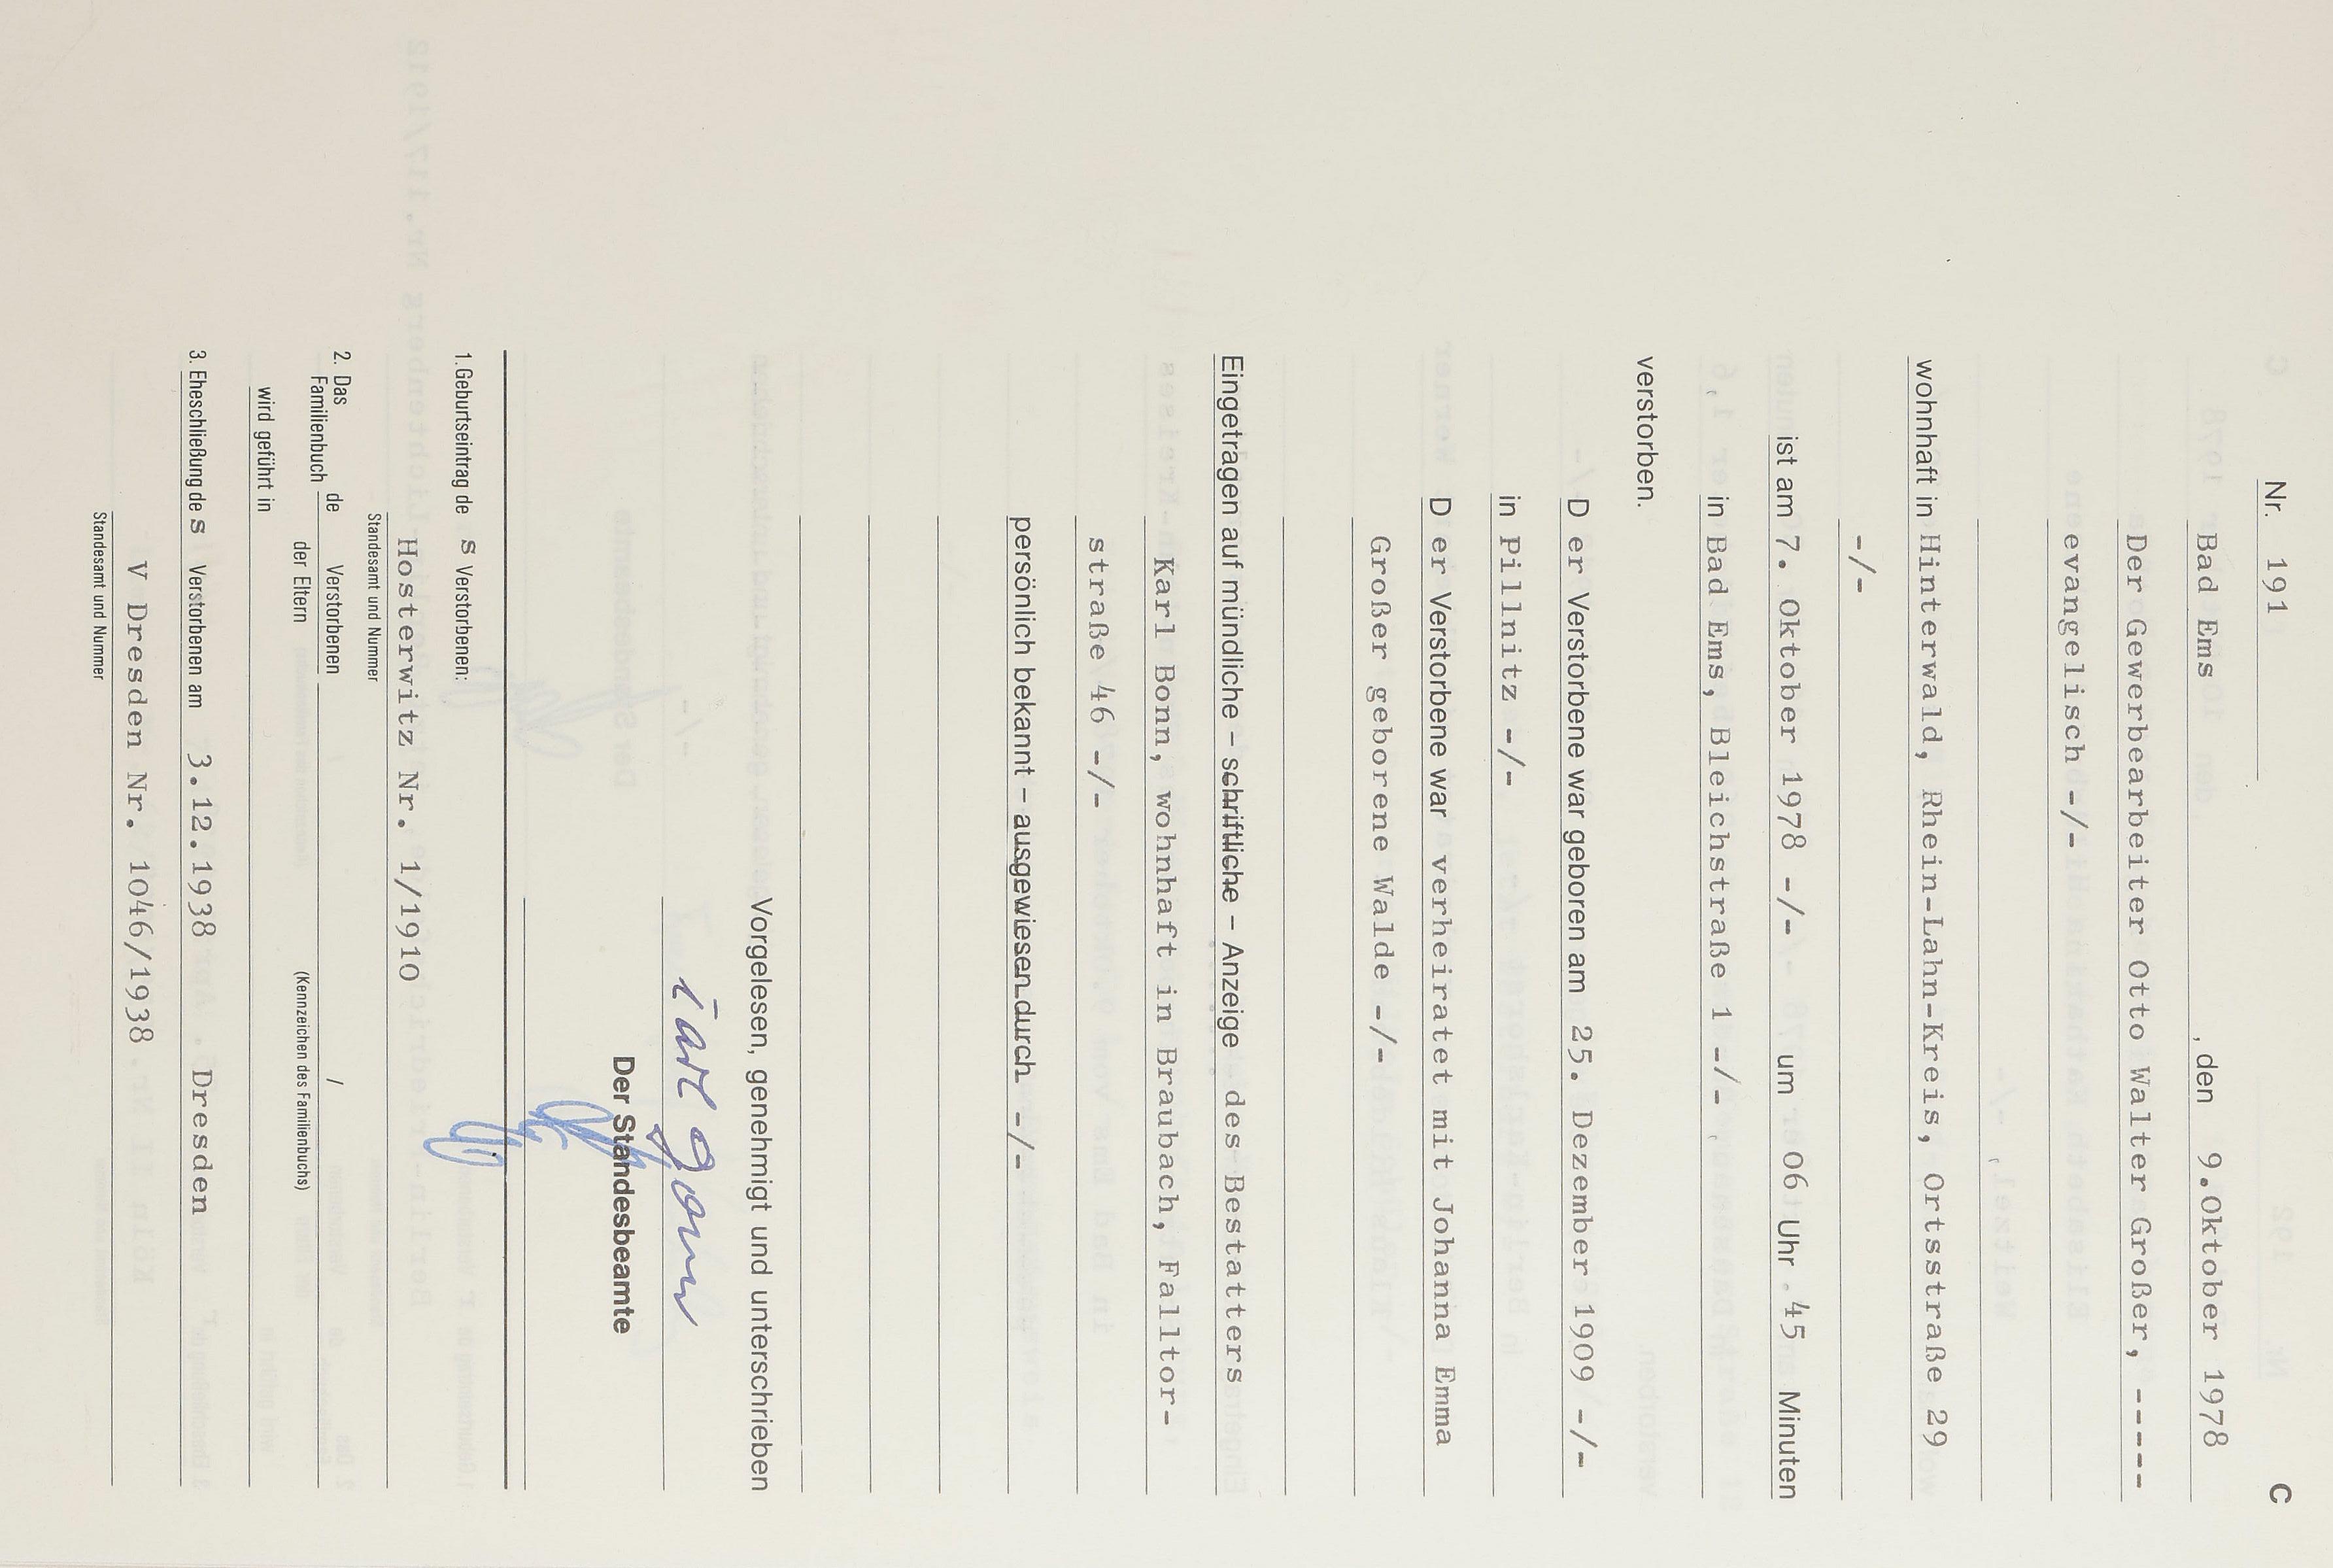 C
Nr. 191
Bad Ems , den 9.Oktober 1978
Der Gewerbearbeiter Otto Walter Großer, -----
evangelisch -/-
wohnhaft in Hinterwald, Rhein-Lahn-Kreis, Ortsstraße 29
-/-
ist am 7. Oktober 1978 -/- um 06 Uhr 45 Minuten
in Bad Ems, Bleichstraße 1 -/-
verstorben.
D er Verstorbene war geboren am 25. Dezember 1909 -/-
in Pillnitz -/-
D er Verstorbene war verheiratet mit Johanna Emma
Großer geborene Walde -/-
Eingetragen auf mündliche – schriftliche – Anzeige des Bestatters
Karl Bonn, wohnhaft in Braubach, Falltor-
straße 46 -/-
persönlich bekannt – ausgewiesen durch -/-
Vorgelesen, genehmigt und unterschrieben
Der Standesbeamte
1. Geburtseintrag de s Verstorbenen:
Hosterwitz Nr. 1/1910
Standesamt und Nummer
2. Das Familienbuch de Verstorbenen / /
der Eltern (Kennzeichen des Familienbuchs)
wird geführt in
3. Eheschließung de s Verstorbenen am 3.12.1938 Dresden
V Dresden Nr. 1046/1938
Standesamt und Nummer